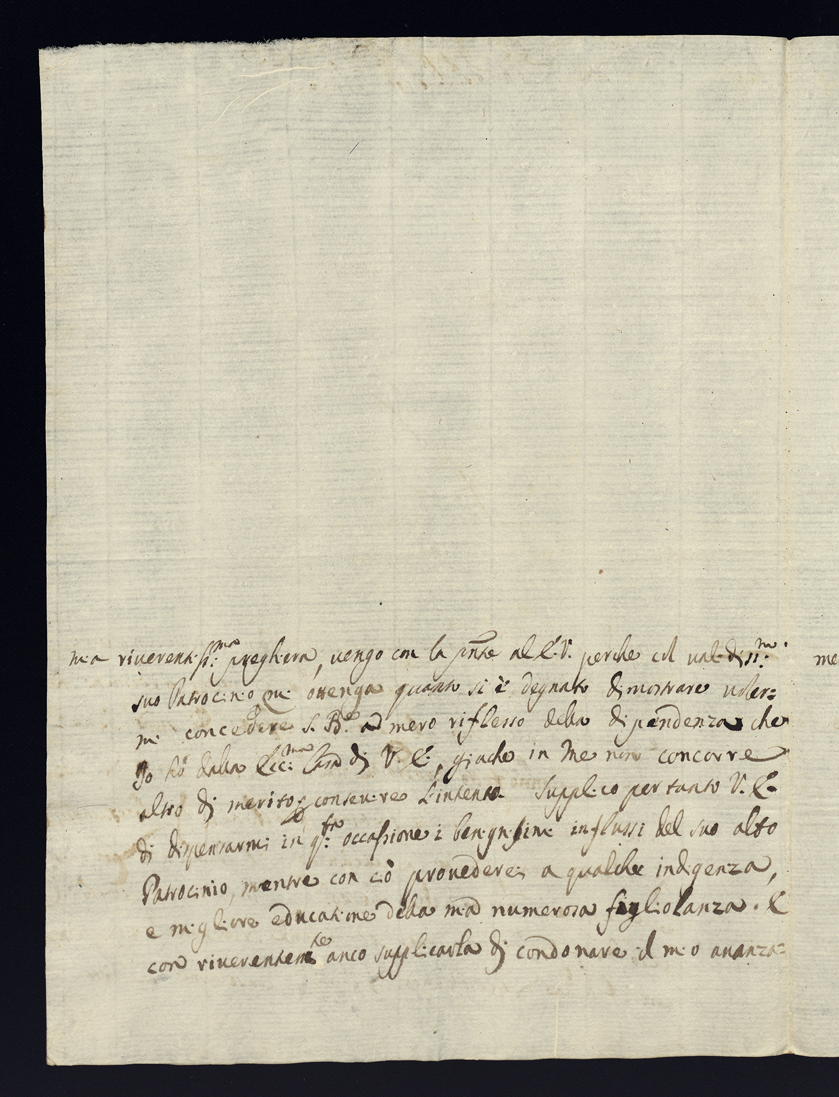 mia riverentiss:ma preghiera, vengo con la pnte all'E.V. perche col validiss:mo me
suo Patrocinio mi ottenga quanto si è degnato dimostrare voler=
mi concedere S. B.e ad mero riflesso della dipendenza che
Io hò dalla Ecc:ma Casa di V. E., giache in me non concorre
altro di merito p conseuire l'intento. Supplico per tanto V. E.
di dispensarmi in q:sta occassione i benignissimi influssi del suo alto
Patrocinio, mentre con ciò provederei a qualche indigenza,
e migliore educatione della mia numerosa figliolanza. E
con riverentemte anco supplicarla di condonare il mio avanza=